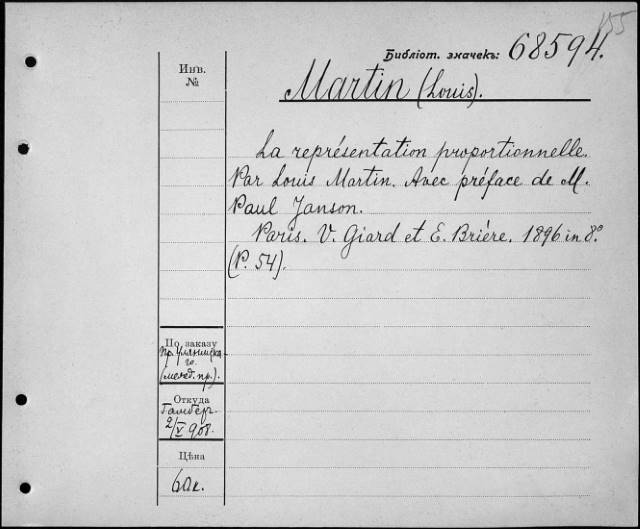 155
Библіот. значекъ: 68594.
Инв.
№
Martin (Louis).
La représentation proportionnelle.
Par Louis Martin. Avec préface de M.
Paul Janson.
Paris. V. Giard et E. Brière. 1896 in 8º
(P. 54).
По заказу
Пр. Уляницка-
го.
(межд. пр.).
Откуда
Гамбер.
2/V 908.
Цѣна
60к.